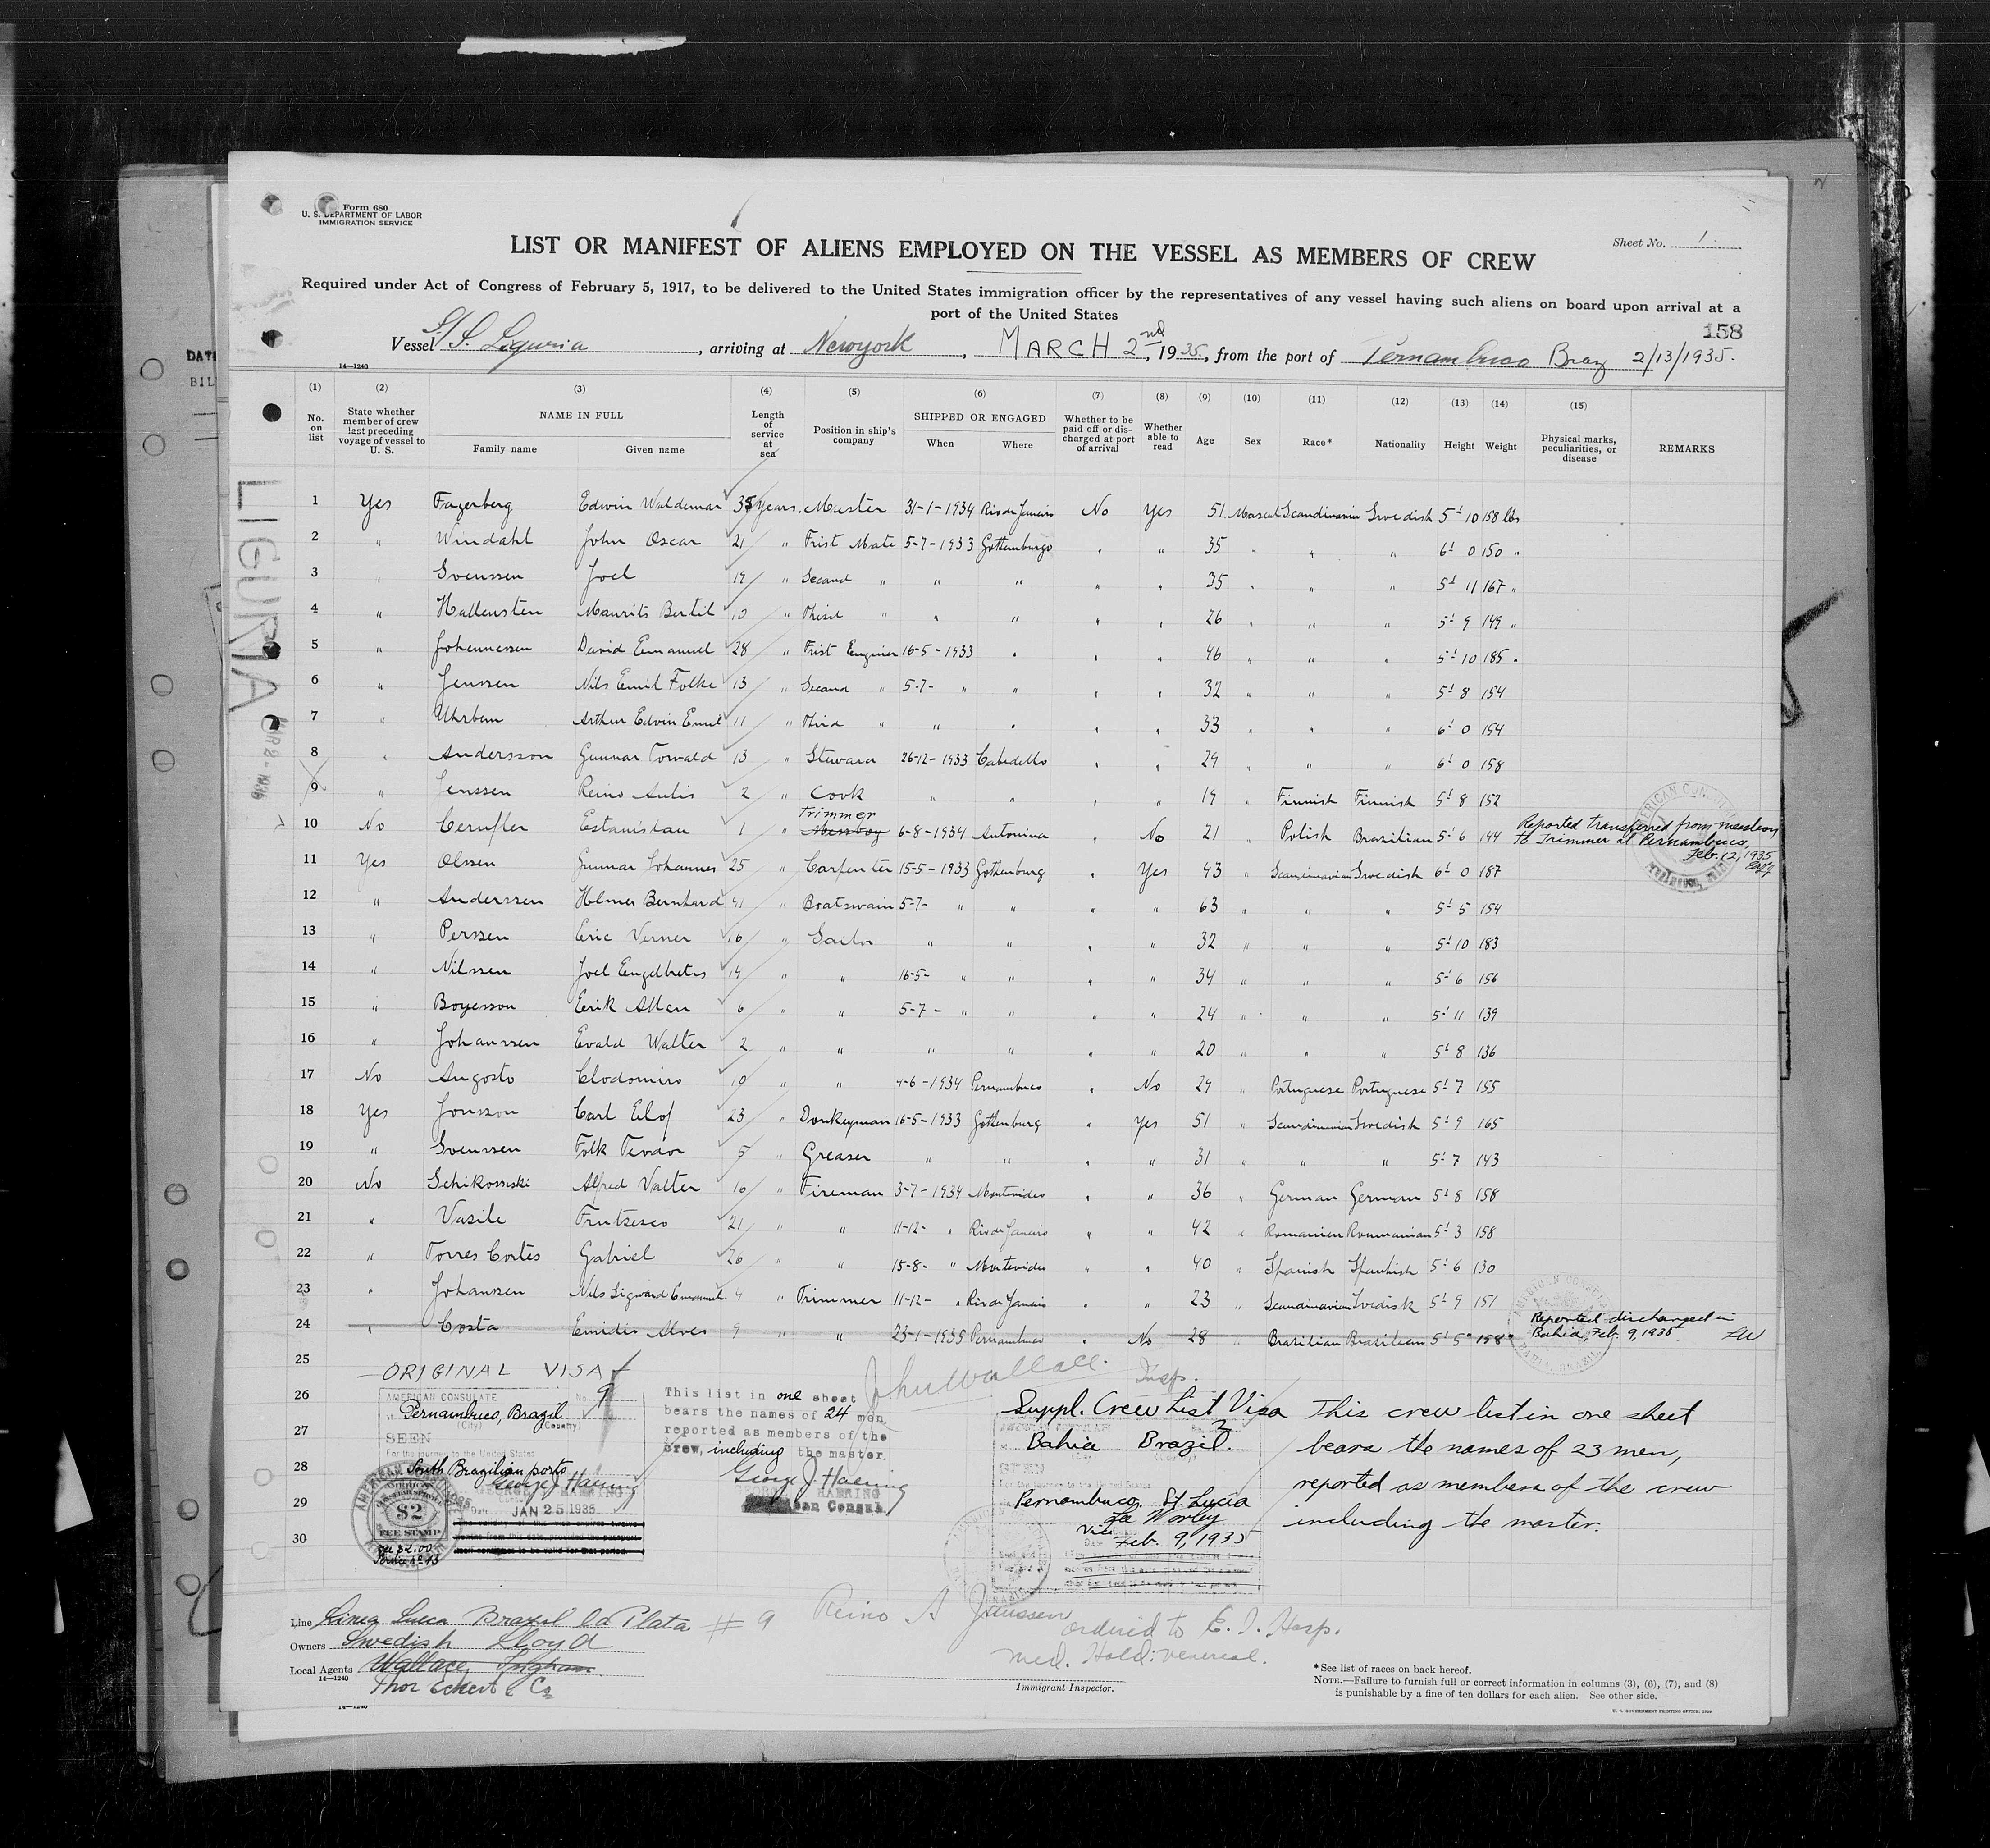 Form 680
U. S. DEPARTMENT OF LABOR
IMMIGRATION SERVICE
Sheet No. 1
LIST OR MANIFEST OF ALIENS EMPLOYED ON THE VESSEL AS MEMBERS OF CREW
Required under Act of Congress of February 5, 1917, to be delivered to the United States immigration officer by the representatives of any vessel having such aliens on board upon arrival at a
port of the United States
158
Vessel S/S. Liguria, arriving at Newyork, MARCH 2nd, 1935, from the port of Pernambuco Braz 2/13/1935.
14—1240
(1) (2) (3) (4) (5) (6) (7) (8) (9) (10) (11) (12) (13) (14) (15)
No. on list
State whether member of crew last preceding voyage of vessel to U. S.
NAME IN FULL
Family name
Given name
Length of service at sea
Position in ship's company
SHIPPED OR ENGAGED
When
Where
Whether to be paid off or discharged at port of arrival
Whether able to read
Age
Sex
Race*
Nationality
Height
Weight
Physical marks, peculiarities, or disease
REMARKS
LIGURIA
1 Yes Fagerberg Edwin Waldemar 35 years. Master 31-1-1934 Rio de Janeiro No Yes 51 Mascul Scandinavin Swedish 5' 10 158 lbs
2 " Windahl John Oscar 21 " Frist Mate 5-7-1933 Gothemburgo " " 35 " " " 6' 0 150 "
3 " Svenssen Joel 19 " Second " " " " " 35 " " " 5' 11 167 "
4 " Hallensten Maurits Bertil 10 " Third " " " " " 26 " " " 5' 9 149 "
5 " Johannessen David Emanuel 28 " Frist Enginer 16-5-1933 " " " 46 " " " 5' 10 185 "
6 " Jenssen Nils Emil Folke 13 " Second " 5-7- " " " " 32 " " " 5' 8 154
7 " Uhrbem Arthur Edvin Emil 11 " Third " " " " " 33 " " " 6' 0 154
8 " Andersson Gunnar Torvald 13 " Steward 26-12-1933 Cabedello " " 29 " " " 6' 0 158
9 " Jenssen Reino Aulis 2 " Cook " " " " 19 " Finnish Finnish 5' 8 152
Trimmer
10 No Cerufler Estanislau 1 " Messboy 6-8-1934 Antonina " No 21 " Polish Brazilian 5' 6 144 Reported transferred from messboy
to Trimmer at Pernambuco,
Feb. 12, 1935
11 Yes Olssen Gunnar Johannes 25 " Carpenter 15-5-1933 Gothenburg " Yes 43 " Scandinavian Swedish 6' 0 187
12 " Anderssen Holmes Bernhard 41 " Boatswain 5-7- " " " " 63 " " " 5' 5 154
13 " Perssen Eric Verner 16 " Sailor " " " " 32 " " " 5' 10 183
14 " Nilssen Joel Engelbrets 14 " " 16-5- " " " " 34 " " " 5' 6 156
15 " Boyesson Eerik Allan 6 " " 5-7- " " " " 24 " " " 5' 11 139
16 " Johanssen Evald Walter 2 " " " " " " 20 " " " 5' 8 136
17 No Angosto Clodomiro 10 " " 4-6-1934 Pernambuco " No 29 " Portuguese Portuguese 5' 7 155
18 Yes Jonsson Carl Eilof 23 " Donkeyman 16-5-1933 Gothenburg " Yes 51 " Scandinavian Swedish 5' 9 165
19 " Svenssen Folk Teodor 5 " Greaser " " " " 31 " " " 5' 7 143
20 No Schikowski Alfred Valter 10 " Fireman 3-7-1934 Montevideo " " 36 " German German 5' 8 158
21 " Vasile Frutsesco 21 " " 11-12- " Rio de Janeiro " " 42 " Romanien Roumanian 5' 3 158
22 " Torres Cortes Gabriel 20 " " 15-8- " Montevideo " " 40 " Spanish Spanhish 5' 6 130
23 " Johanssen Nils Sigward Emanuel 4 " Trimmer 11-12- " Rio de Janeiro " " 23 " Scandinavian Svedisk 5' 9 151
24 " Costa Emidio Alves 9 " " 23-1-1935 Pernambuco " No 28 " Brasilian Brasilian 5' 5" 158 " Reported discharged in
Bahia, Feb. 9, 1935
25
26
27
28
29
30
ORIGINAL VISA
AMERICAN CONSULATE No. 9
Pernambuco, Brazil
(City) (Country)
SEEN
For the journey to the United States
South Brazilian ports
George J Haering
Date JAN 25 1935
AMERICAN
$2
FEE STAMP
Fee $2.00
This list in one sheet
bears the names of 24 men,
reported as members of the
crew, including the master.
George J Haering
GEORGE J. HAERING
American Consul
John Wallace. Insp.
Suppl. Crew List Visa
Bahia Brazil.
SEEN
Pernambuco, St. Lucia
Worley
Date Feb. 9, 1935
This crew list in one sheet
bears the names of 23 men,
reported as members of the crew
including the master.
Line Linea Sueca Brazil La Plata
Owners Swedish Lloyd
Local Agents Wallace, Ingham
14—1240
Thor Eckert & Co
# 9 Reino A Janssen
ordered to E. I. Hosp.
Med. Hold: venereal.
Immigrant Inspector.
*See list of races on back hereof.
NOTE.—Failure to furnish full or correct information in columns (3), (6), (7), and (8)
is punishable by a fine of ten dollars for each alien. See other side.
U. S. GOVERNMENT PRINTING OFFICE